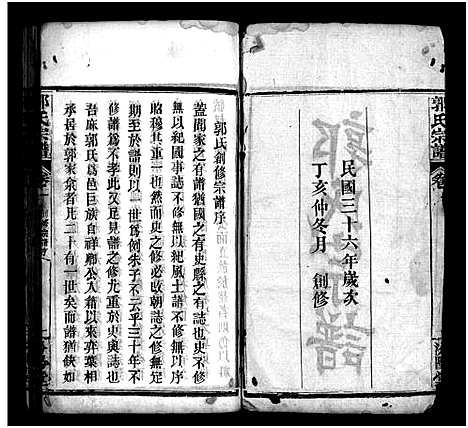 郭氏宗譜
民國三十六年歲次
丁亥仲冬月　創修
郭氏宗譜
郭氏創修宗譜序
蓋聞家之有譜猶國之有史縣之有誌也史不修
無以紀國事誌不修無以紀風土譜不修無以序
昭穆其重一也然而史之修必改朝誌之修無定
期至於譜則以二世為例朱子不云乎三十年不
修譜為不孝此又足見譜之修尤重於史與誌也
吾麻郭氏為邑巨族自祥卿公入籍以來奕葉相
承居於郭家衆者凡二十有一世矣而譜猶缺如